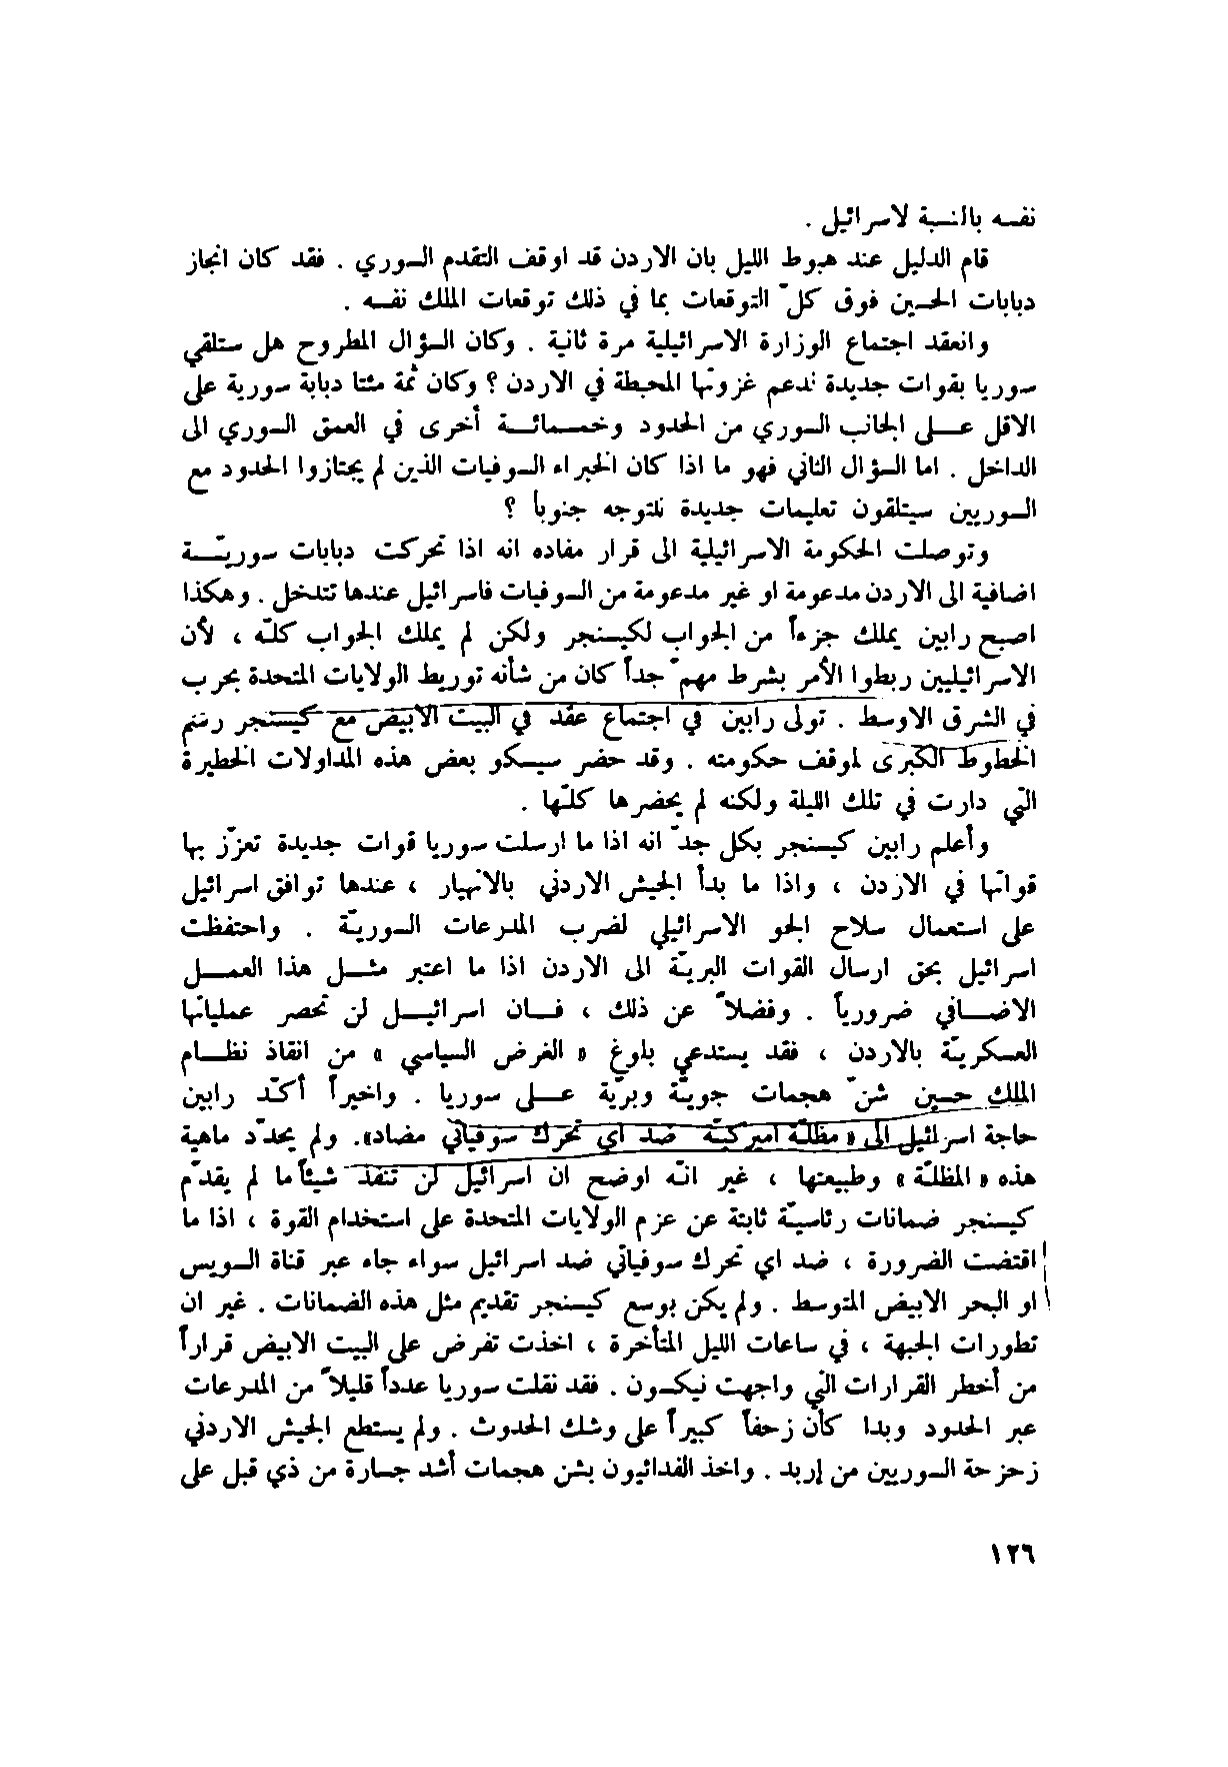 نفسه بالنسبة لاسرائيل .
قام الدليل عند هبوط الليل بان الاردن قد اوقف التقدم السوري . فقد كان انجاز
دبابات الحسين فوق كلّ التوقعات بما في ذلك توقعات الملك نفسه .
وانعقد اجتماع الوزارة الاسرائيلية مرة ثانية . وكان السؤال المطروح هل ستلقي
سوريا بقوات جديدة تدعم غزوتها المحبطة في الاردن ؟ وكان ثمة مئتا دبابة سورية على
الاقل على الجانب السوري من الحدود وخمسمائة أخرى في العمق السوري الى
الداخل . اما السؤال الثاني فهو ما اذا كان الخبراء السوفيات الذين لم يجتازوا الحدود مع
السوريين سيتلقون تعليمات جديدة للتوجه جنوباً ؟
وتوصلت الحكومة الاسرائيلية الى قرار مفاده انه اذا تحركت دبابات سوريّة
اضافية الى الاردن مدعومة او غير مدعومة من السوفيات فاسرائيل عندها تتدخل . وهكذا
اصبح رابين يملك جزءاً من الجواب لكيسنجر ولكن لم يملك الجواب كلّه ، لأن
الاسرائيليين ربطوا الأمر بشرط مهمّ جداً كان من شأنه توريط الولايات المتحدة بحرب
في الشرق الاوسط . تولى رابين في اجتماع عقد في البيت الابيض مع كيسنجر رسم
الخطوط الكبرى لموقف حكومته . وقد حضر سيسكو بعض هذه المداولات الخطيرة
التي دارت في تلك الليلة ولكنه لم يحضرها كلّها .
وأعلم رابين كيسنجر بكل جدّ انه اذا ما ارسلت سوريا قوات جديدة تعزّز بها
قواتها في الاردن ، واذا ما بدأ الجيش الاردني بالانهيار ، عندها توافق اسرائيل
على استعمال سلاح الجو الاسرائيلي لضرب المدرعات السوريّة . واحتفظت
اسرائيل بحق ارسال القوات البريّة الى الاردن اذا ما اعتبر مثل هذا العمل
الاضافي ضرورياً . وفضلاً عن ذلك ، فان اسرائيل لن تحصر عملياتها
العسكريّة بالاردن ، فقد يستدعي بلوغ « الغرض السياسي » من انقاذ نظام
الملك حسين شنّ هجمات جويّة وبريّة على سوريا . واخيراً أكّد رابين
حاجة اسرائيل الى « مظلّة اميركيّة ضد اي تحرك سوفياتي مضاد». ولم يحدّد ماهية
هذه « المظلّة » وطبيعتها ، غير انّه اوضح ان اسرائيل لن تنفذ شيئاً ما لم يقدّم
كيسنجر ضمانات رئاسيّة ثابتة عن عزم الولايات المتحدة على استخدام القوة ، اذا ما
اقتضت الضرورة ، ضد اي تحرك سوفياتي ضد اسرائيل سواء جاء عبر قناة السويس
او البحر الابيض المتوسط . ولم يكن بوسع كيسنجر تقديم مثل هذه الضمانات . غير ان
تطورات الجبهة ، في ساعات الليل المتأخرة ، اخذت تفرض على البيت الابيض قراراً
من أخطر القرارات التي واجهت نيكسون . فقد نقلت سوريا عدداً قليلاً من المدرعات
عبر الحدود وبدا كأن زحفاً كبيراً على وشك الحدوث . ولم يستطع الجيش الاردني
زحزحة السوريين من إربد . واخذ الفدائيون بشن هجمات أشد جسارة من ذي قبل على
١٢٦